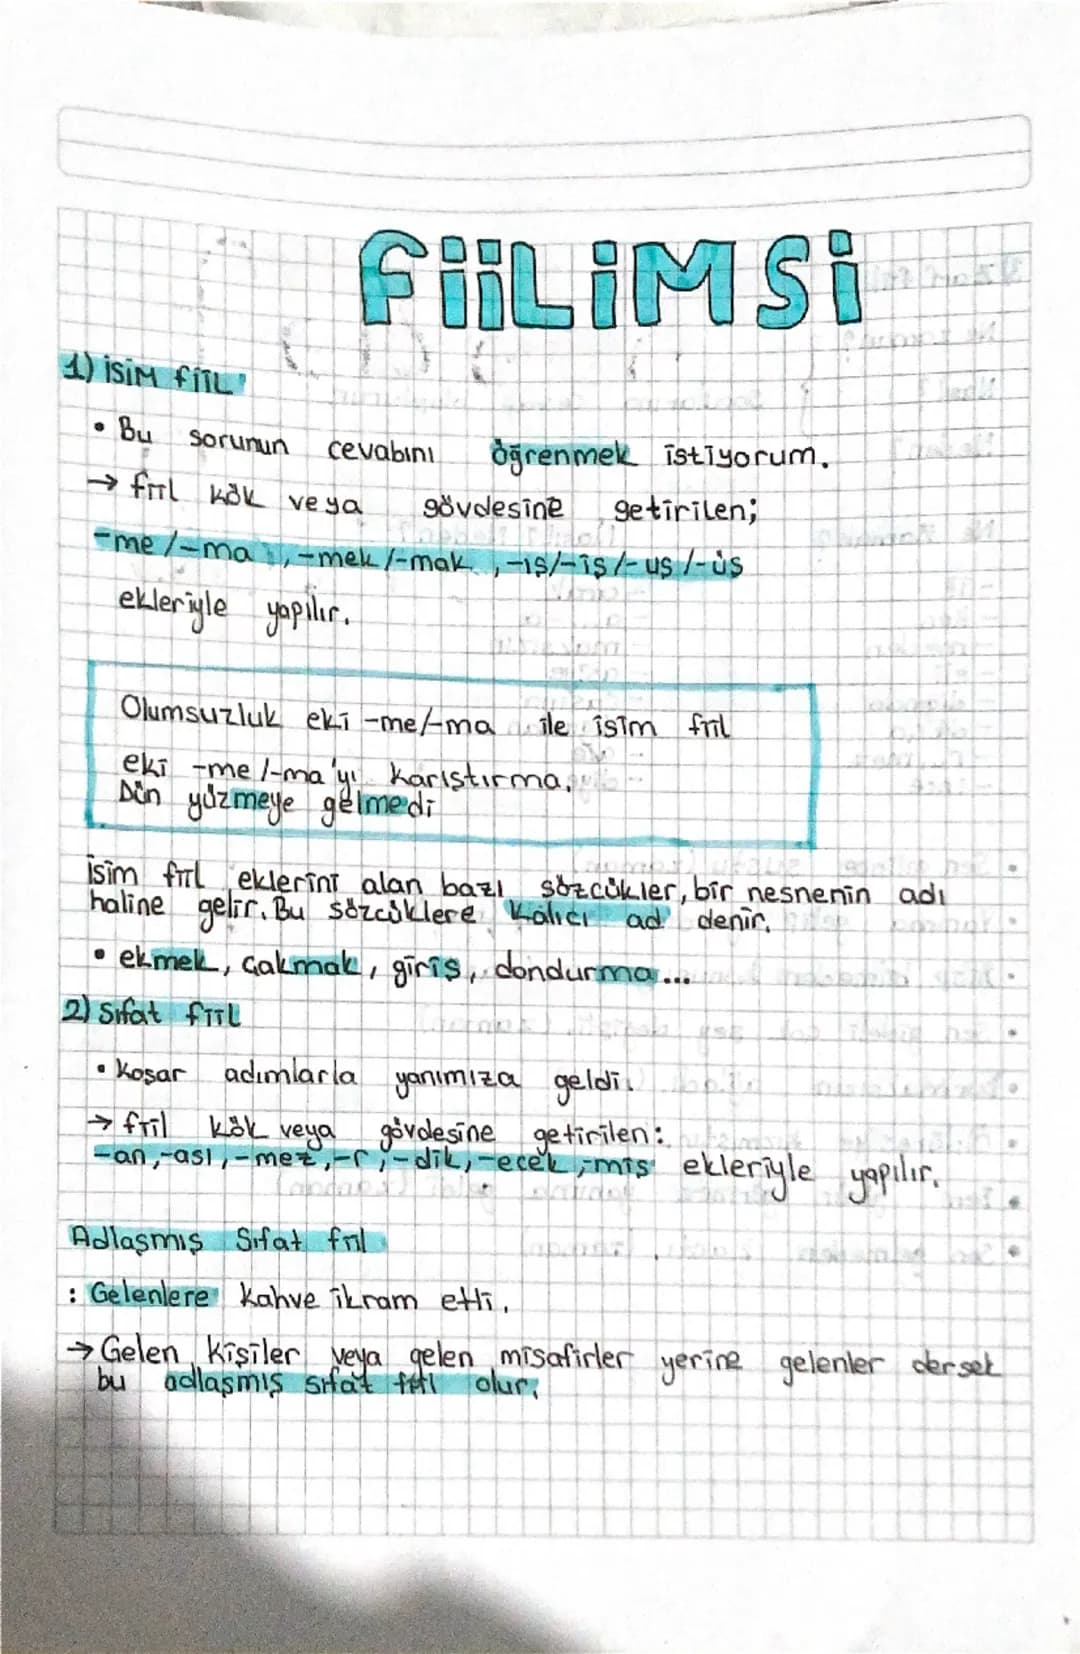 FiiLiMSi
1) isiM fiiL
• Bu sorunun cevabını öğrenmek istiyorum.
→ fiil kök veya gövdesine getirilen;
-me/-ma, -mek/-mak, -ış/-iş/-uş/-üş
ekleriyle yapılır.
Olumsuzluk eki -me/-ma ile isim fiil
eki -me/-ma'yı karıştırma.
Dün yüzmeye gelmedi
isim fiil eklerini alan bazı sözcükler, bir nesnenin adı
haline gelir. Bu sözcüklere kalıcı ad denir.
• ekmek, çakmak, giriş, dondurma...
2) Sıfat fiil
• Koşar adımlarla yanımıza geldi.
→ fiil kök veya gövdesine getirilen:
-an,-ası,-mez,-r,-dik,-ecek,-miş ekleriyle yapılır.
Adlaşmış Sıfat fiil
: Gelenlere kahve ikram etti.
→ Gelen kişiler veya gelen misafirler yerine gelenler dersek
bu adlaşmış sıfat fiil olur.